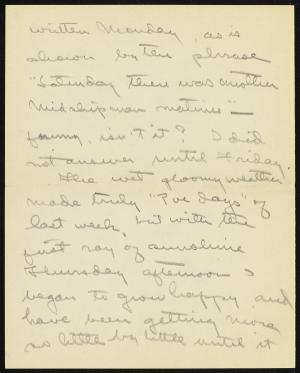 written Monday, as is
shown by the phrase
"Saturday there was another
Midshipman matinee" —
funny, isn't it? I did
not answer until Friday.
The wet gloomy weather
made truly days" of
last week, but with the
first ray of sunshine
Thursday afternoon I
began to grow happy and
have been getting more
so little by little until it